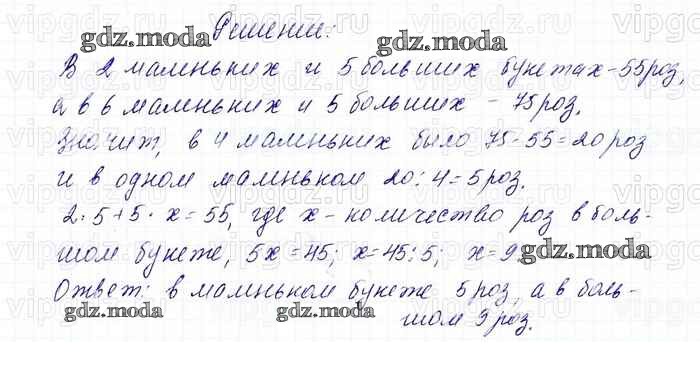 Решение:
В 2 маленьких и 5 больших букетах - 55 роз,
а в 6 маленьких и 5 больших - 75 роз.
Значит, в 4 маленьких было 75-55=20 роз
и в одном маленьком 20:4=5 роз.
2·5+5·x=55, где x - количество роз в боль-
шом букете, 5x=45; x=45:5; x=9
Ответ: в маленьком букете 5 роз, а в боль-
шом 9 роз.
gdz.moda
gdz.moda
gdz.moda
gdz.moda
gdz.moda
vipgdz.ru